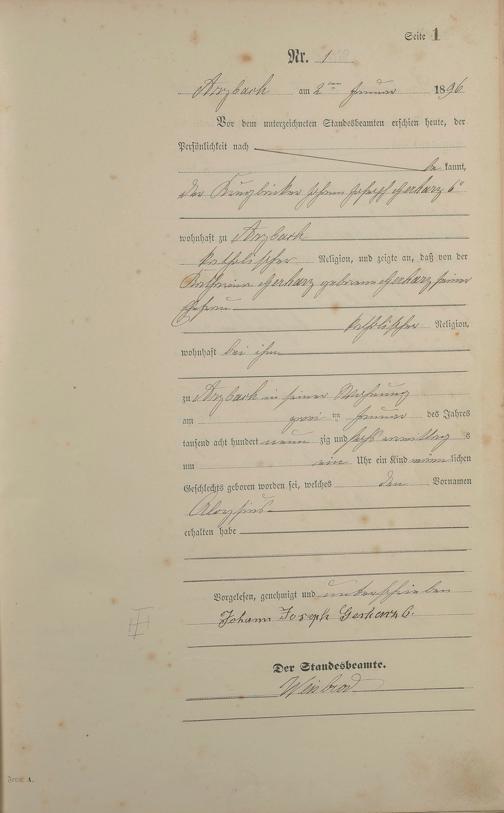 Seite 1
Nr. 1
Arzbach am 2ten Januar 1896
Vor dem unterzeichneten Standesbeamten erschien heute, der
Persönlichkeit nach
be kannt,
der Krugbäcker Johann Joseph Gerharz 6r
wohnhaft zu Arzbach
katholischer Religion, und zeigte an, daß von der
Katharina Gerharz geborene Gerharz seiner
Ehefrau
katholischer Religion,
wohnhaft bei ihm
zu Arzbach in seiner Wohnung
am zwei ten Januar des Jahres
tausend acht hundert neun zig und sechs vormittags
um ein Uhr ein Kind männlichen
Geschlechts geboren worden sei, welches den Vornamen
Aloysius
erhalten habe
Vorgelesen, genehmigt und unterschrieben
Johann Joseph Gerharz 6.
Der Standesbeamte.
Form A.